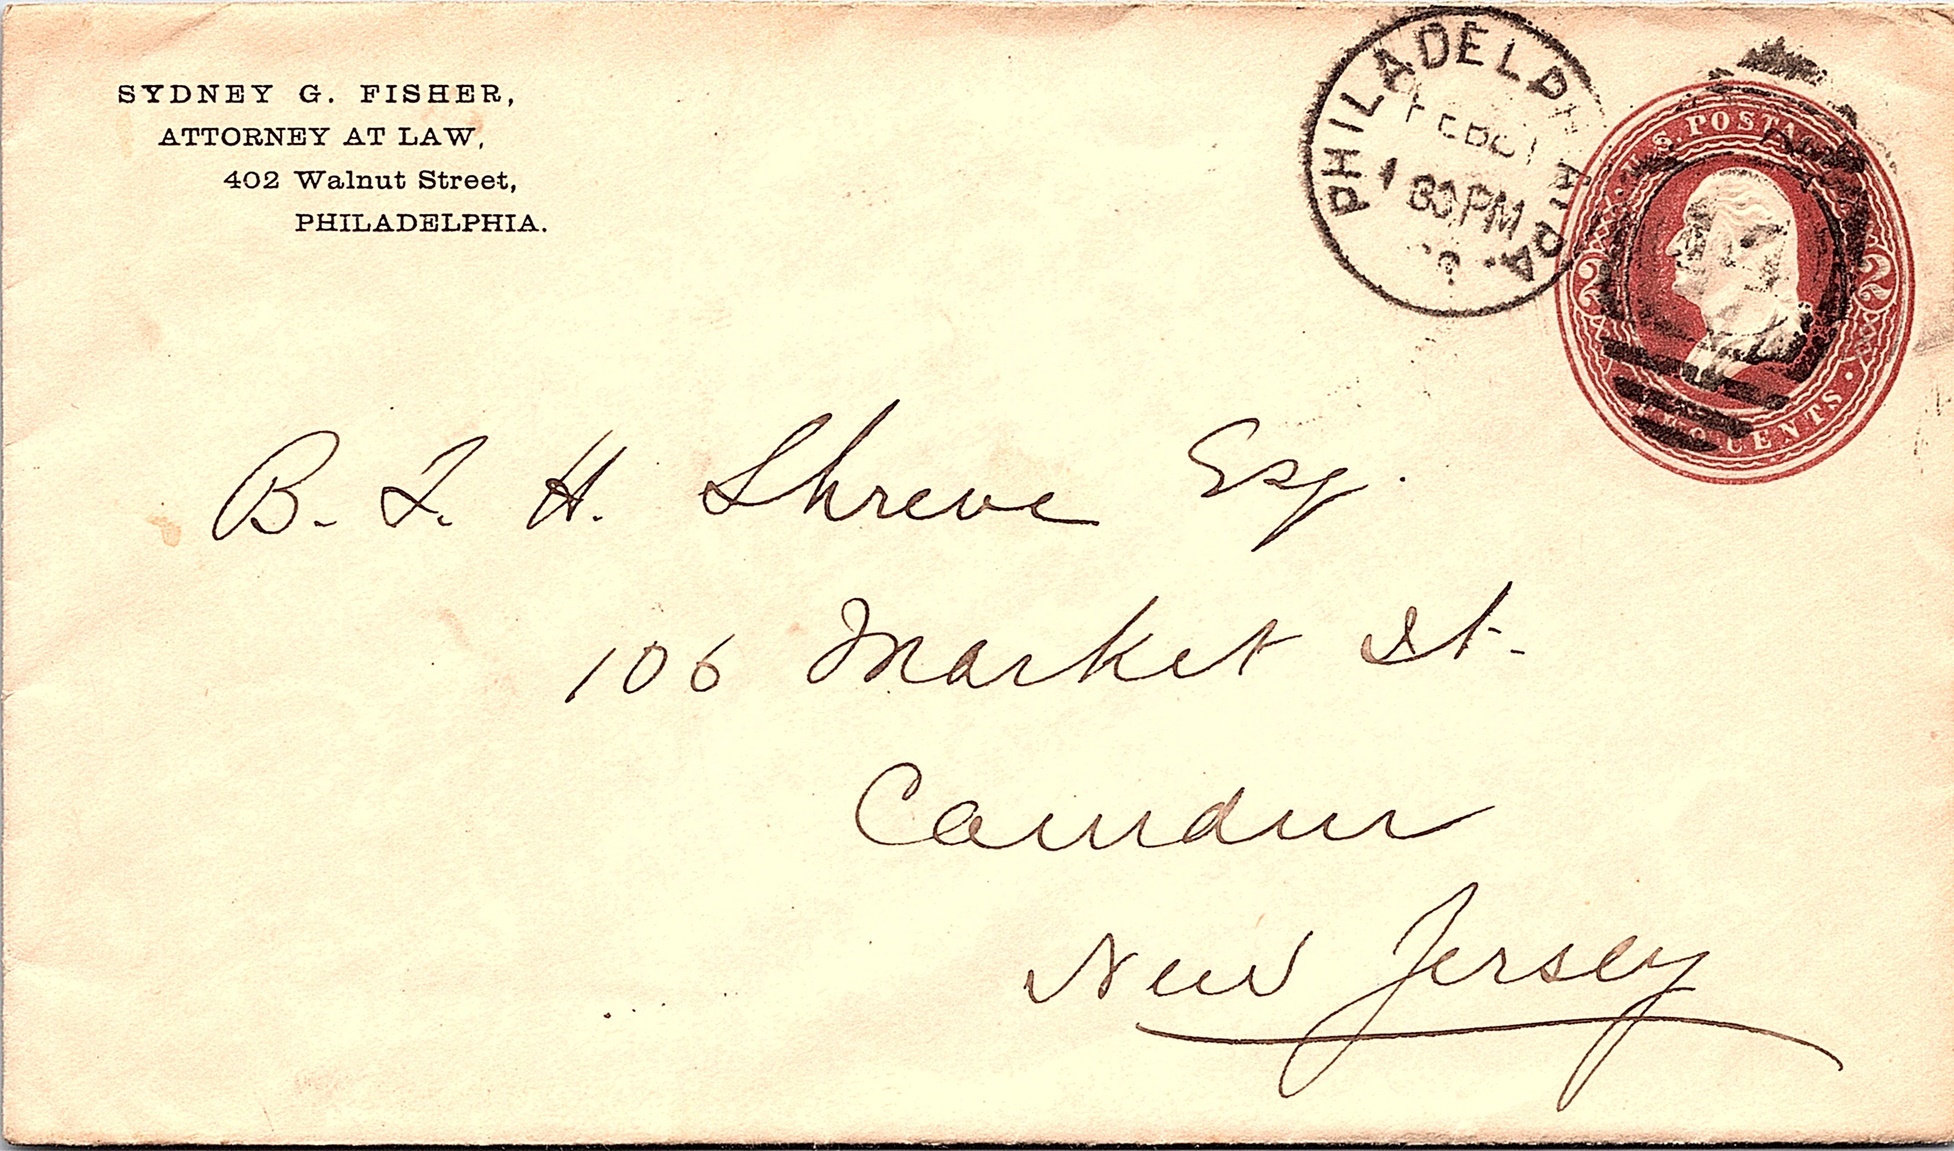 SYDNEY G. FISHER,
ATTORNEY AT LAW,
402 Walnut Street,
PHILADELPHIA.
PHILADELPHIA, PA.
FEB
PM
U.S. POSTAGE
2 2
TWO CENTS.
B. F. H. Shreve Esq.
106 Market St.
Camden
New Jersey